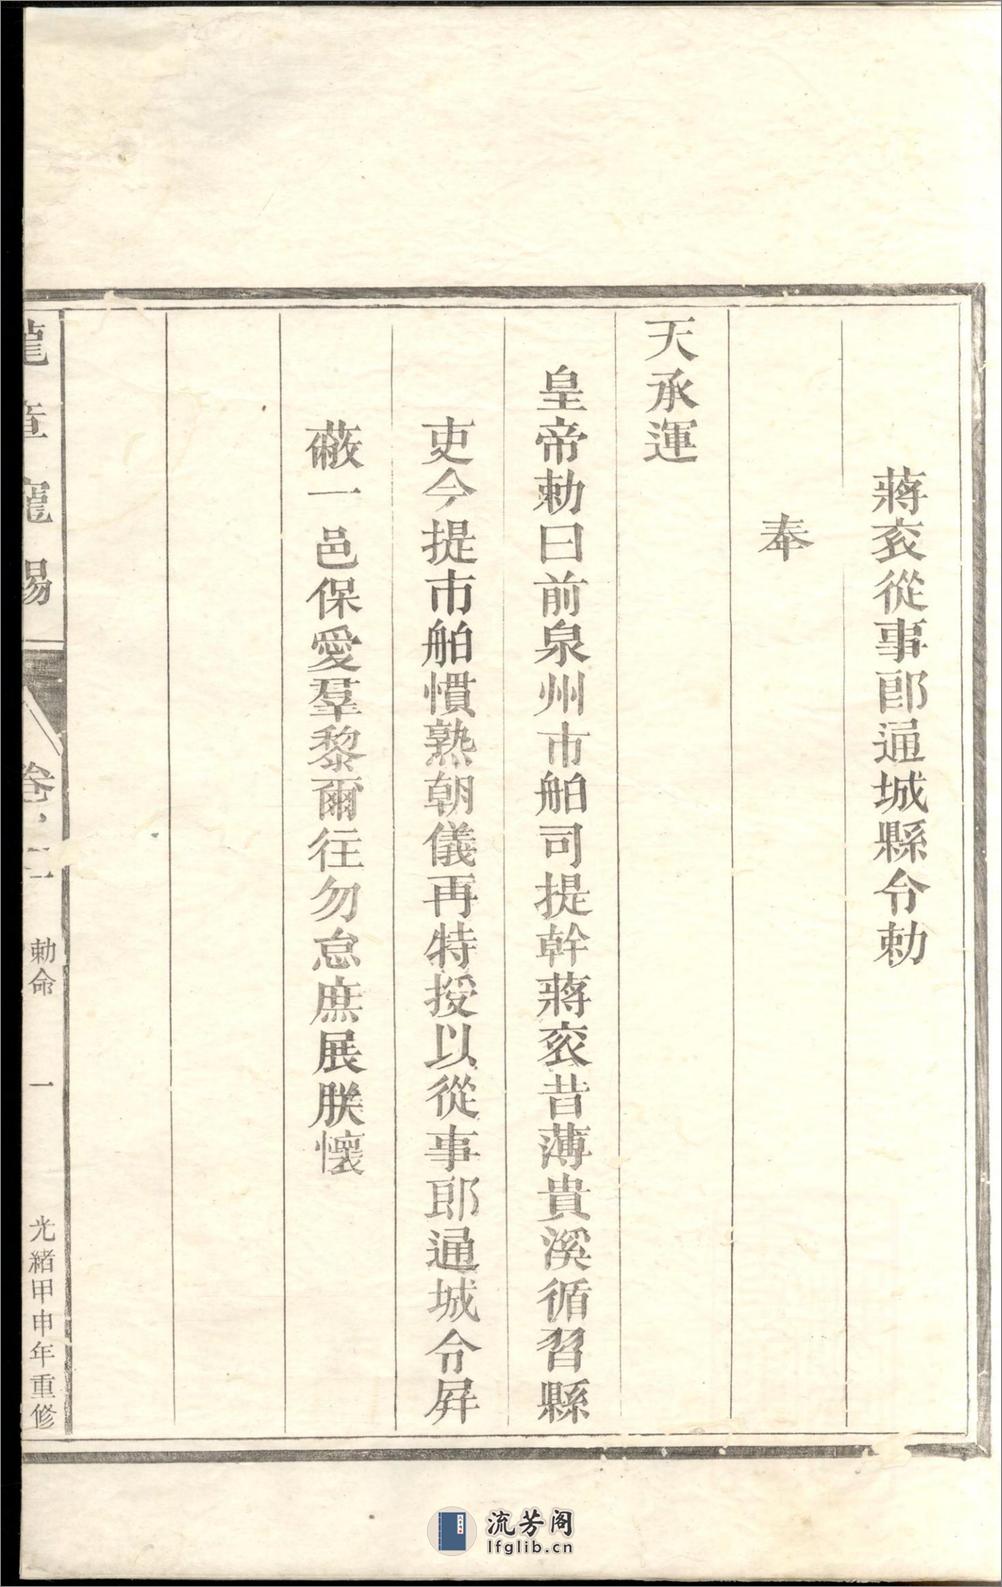 蔣亥從事郎通城縣令勅
奉
天承運
皇帝勅曰前泉州市舶司提幹蔣亥昔薄貴溪循習縣
吏今提市舶慣熟朝儀再特授以從事郎通城令屏
蔽一邑保愛羣黎爾往勿怠庶展朕懷
龍章寵錫
卷之二
勅命
一
光緒甲申年重修
流芳阁
lfglib.cn